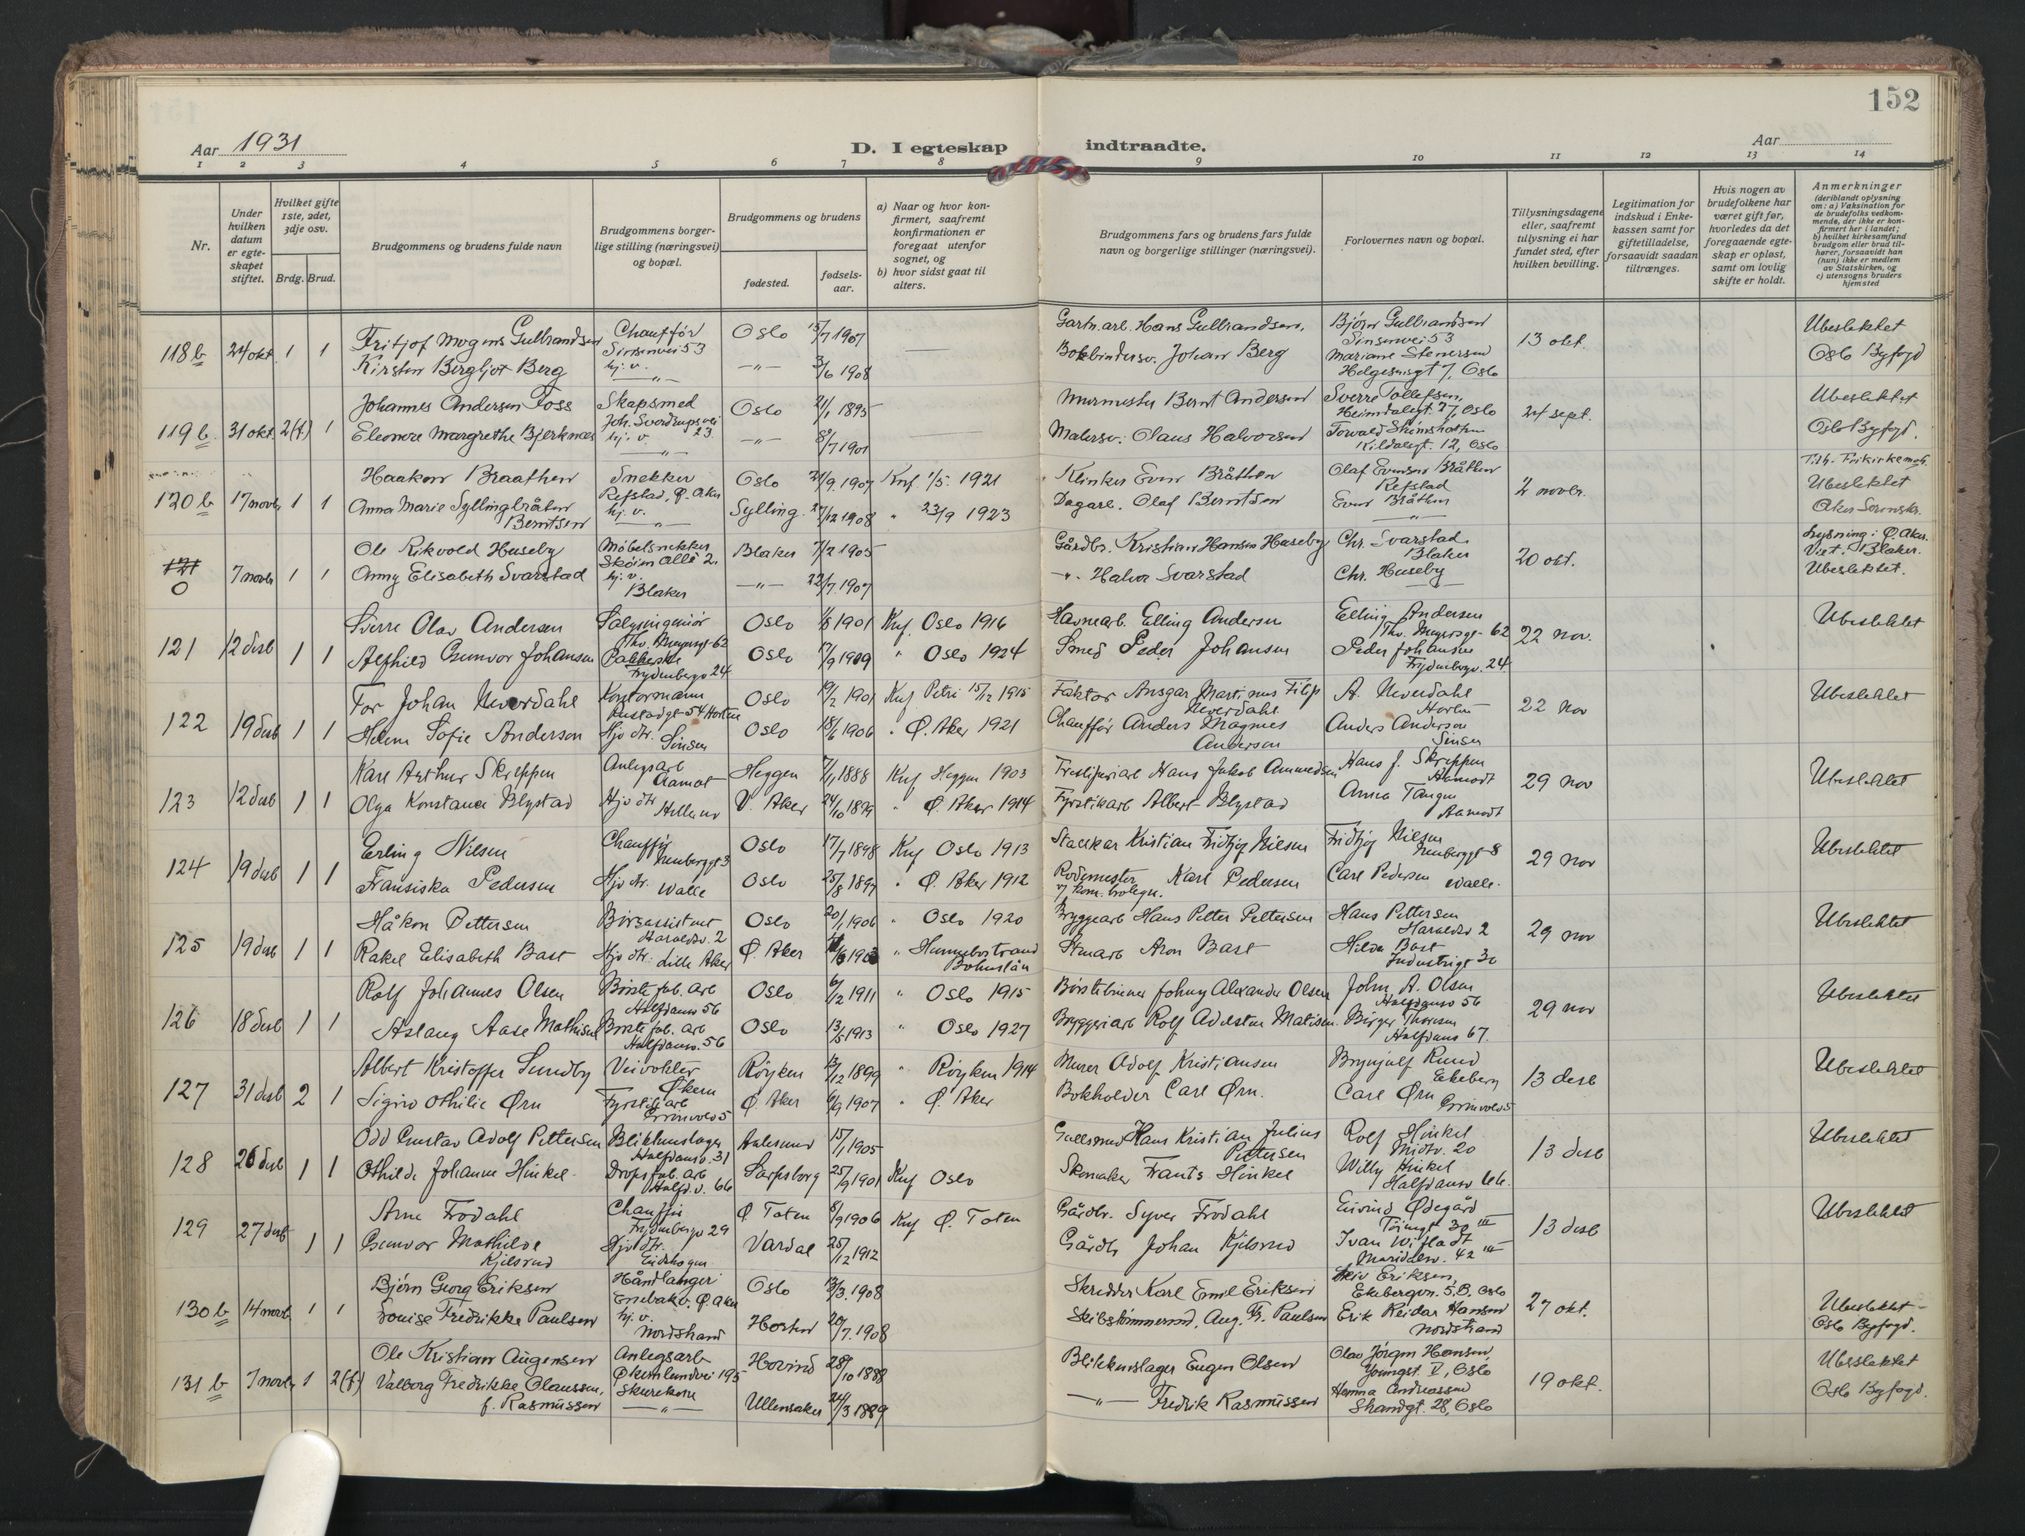 152
Aar 1931
D. I egteskap indtraadte.
Aar
1 2 3 4 5 6 7 8 9 10 11 12 13 14
Nr.
Under hvilken datum er egte-skapet stiftet.
Hvilket gifte 1ste, 2det, 3dje osv.
Brdg. Brud.
Brudgommens og brudens fulde navn
Brudgommens borger-lige stilling (næringsvei) og bopæl.
Brudgommens og brudens
fødested.
fødsels-aar.
a) Naar og hvor kon-firmert, saafremt konfirmationen er foregaat utenfor sognet, og
b) hvor sidst gaat til alters.
Brudgommens fars og brudens fars fulde navn og borgerlige stillinger (næringsvei).
Forlovernes navn og bopæl.
Tillysningsdagene eller, saafremt tillysning ei har fundet sted, efter hvilken bevilling.
Legitimation for indskud i Enke-kassen samt for giftetilladelse, forsaavidt saadan tiltrænges.
Hvis nogen av brudefolkene har været gift før, hvorledes da det foregaaende egte-skap er opløst, samt om lovlig skifte er holdt.
Anmerkninger (deriblandt oplysning om: a) Vaksination for de brudefolks vedkom-mende, der ikke er kon-firmert her i landet; b) hvilket kirkesamfund brudgom eller brud til-hører, forsaavidt han (hun) ikke er medlem av Statskirken, og c) utensogns bruders hjemsted
118 b 24 okt. 1 1 Fritjof Mogens Gulbrandsen Chauffør Sinsenvei 53 Oslo 15/7 1907 Gartn.arb. Hans Gulbrandsen, Bjørn Gulbrandsen Sinsenvei 53 13 okt. Ubeslektet
Kirsten Bergljot Berg hj. v. —"— —"— 3/6 1908 Bokbindersv. Johan Berg Mariane Stenersen Helgesensgt 7, Oslo Oslo Byfogd
119 b. 31 okt. 2(f) 1 Johannes Andersen Foss Skapsmed Joh. Sverdrupsvei 23 Oslo 21/1 1895 Murmester Bernt Andersen Sverre Tollefsen, Heimdalsgt. 27, Oslo 24 sept. Ubeslektet
Eleonore Margrethe Bjerknæs hj. v. —"— —"— 8/7 1901 Malersv. Olaus Halvorsen Torvald Kildalsgt. 12, Oslo Oslo Byfogd.
120 b 17 novbr 1 1 Haakon Braathen Snekker Refstad, Ø. Aker Oslo 21/9. 1907 Knf 1/5. 1921 Klinker Even Bråthen Olaf Evensen Bråthen Refstad 2 novbr. Tilh. Frikirkemen. Ubeslektet
Anna Marie Syllingbråten Berntsen hj. v. —"— Sylling. 27/12 1908 " 23/9 1923 Dagarb. Olaf Berntsen Even Bråthen —"— Aker Sorenskr.
121 0 7 novbr 1 1 Ole Rikvold Huseby Møbelsnekker Skøien Allé 2. Blaker 7/2 1905 Gårdbr. Kristian Hansen Huseby Chr. Svarstad Blaker 20 okt. Lysning i Ø. Aker. Viet. Blaker.
Anny Elisabeth Svarstad hj. v. Blaker —"— 22/7. 1907 —"— Halvor Svarstad Chr. Huseby —"— Ubeslektet.
121 12 desb 1 1 Sverre Olav Andersen Salgsingeniør Thv. Meyersgt 62 Oslo 1/8 1901 Knf. Oslo 1916 Havnearb. Elling Andersen Elling Andersen Thv. Meyersgt 62 22 nov. Ubeslektet
Alfhild Gunvor Johansen Pakkerske Frydenbergv 24 Oslo 17/9 1909 " Oslo 1924 Smed Peder Johansen Peder Johansen Frydenbergv. 24
122 19 desb 1 1 Tor Johan Neverdahl Kontormann Rustadgt 54 Horten Oslo 19/2 1901 Knf Petri 15/12 1915 Faktor Ansgar Martinus Filip Neverdahl A. Neverdahl Horten 22 nov Ubeslektet
Helene Sofie Anderson Hjv dtr. Sinsen Oslo 18/6 1906 " Ø. Aker 1921 Chauffør Anders Magnus Anderson Anders Anderson Sinsen
123 12 desb 1 1 Karl Arthur Skreppen Anlegsarb Aamot Heggen 7/1 1888 Knf Heggen 1903 Tresliperiarb Hans Jakob Ammedsen Hans J. Skreppen Aamodt 29 nov Ubeslektet
Olga Konstance Blystad Hjv dtr Hellerud V. Aker 24/10 1899 " Ø. Aker 1914 Fyrstikarb Albert Blystad Anna Tangen Aamodt
124 19 desb 1 1 Erling Nilsen Chauffør Neubergt 3 Oslo 17/7 1898 Knf Oslo 1913 Stallkar Kristian Fridtjof Nilsen Fridtjof Nilsen Neubergt 8 29 nov Ubeslektet
Fransiska Pedersen Hjv dtr. Valle Oslo 25/8 1897 " Ø. Aker 1912 Rodemester v/ kom. boligv. Karl Pedersen Carl Pedersen Valle.
125 19 desb 1 1 Håkon Pettersen Børsassistent Haraldsv. 2 Oslo 20/1 1906 " Oslo 1920 Bryggearb Hans Petter Pettersen Hans Pettersen Haraldsv 2 29 nov Ubeslektet
Rakel Elisabeth Bast Hjv dtr. Lille Aker Ø. Aker 1903 " Hunnebostrand Bohuslän Stenarb Aron Bast Hilda Bast Industrigt 30
126 18 desb 1 1 Rolf Johannes Olsen Børste fab. arb Halfdansv 56 Oslo 6/12 1911 " Oslo 1915 Børstebinner Johny Alexander Olsen John A. Olsen Halfdansv 56 29 nov Ubeslektet
Aslaug Aase Mathisen Børste fab. arb Halfdansv. 56 Oslo 13/5 1913 " Oslo 1927 Bryggeriarb Rolf Adelsten Matisen Birger Thoresen Halfdansv 67.
127 31 desb 2 1 Albert Kristoffer Sundby Veivokter Økern Røyken 13/12 1899 " Røyken 1914 Murer Adolf Kristiansen Brynjulf Ruud Ekeberg 13 desb Ubeslektet
Sigrid Othilie Ørn Fyrstikarb Grønvold 5 Ø. Aker 6/9 1907 " Ø. Aker Bokholder Carl Ørn. Carl Ørn Grønvold 5
128 26 desb 1 1 Odd Gustav Adolf Pettersen Blikkenslager Halfdansv. 31 Aalesund 15/1 1905 Gullsmed Hans Kristian Julius Pettersen Rolf Hinkel Midtv. 20 13 desb Ubeslektet
Othilde Johanne Hinkel Drops fab. arb Halfd. v. 66 Sarpsborg 25/9 1901 Knf Oslo Skomaker Frants Hinkel Willy Hinkel Halfdansv 66.
129 27 desb 1 1 Arne Frodahl Chauffør Frydenbergv 29 Ø Toten 8/9 1906 Knf Ø. Toten Gårdbr. Syver Frodahl Eivind Ødegård Tøiengt 30 III 13 desb Ubeslektet
Gunvor Mathilde Kjelsrud Hjv dtr. Vardal 25/12 1912 Gårdb Johan Kjelsrud Ivan Wifladt Maridalsv. 42 III
130 b 14 novb 1 1 Bjørn Georg Eriksen Håndlanger Enebakv. Ø. Aker Oslo 13/3. 1908 Skredder Karl Emil Eriksen Eriksen, Ekebergvn. 5. B, Oslo 27 okt. Ubeslektet
Louise Fredrikke Paulsen hj. v. Nordstrand Horten 20/7. 1908 Skibstømmermd. Aug. Fr. Paulsen Erik Reidar Hansen Nordstrand Oslo Byfogd.
131 b 7 novb 1 2(f) Ole Kristian Augensen Anlegsarb Økernlundvei 195 Hovind 28/10 1888 Blikkenslager Eugen Olsen Olav Jørgen Hansen, Youngst. V, Oslo 19 okt. Ubeslektet
Valborg Fredrikke Olaussen, f. Rasmussen Skurekone —"— Ullensaker 24/3 1889 —"— Fredrik Rasmussen Hanna Andreassen Strandgt. 28, Oslo Oslo Byfogd.